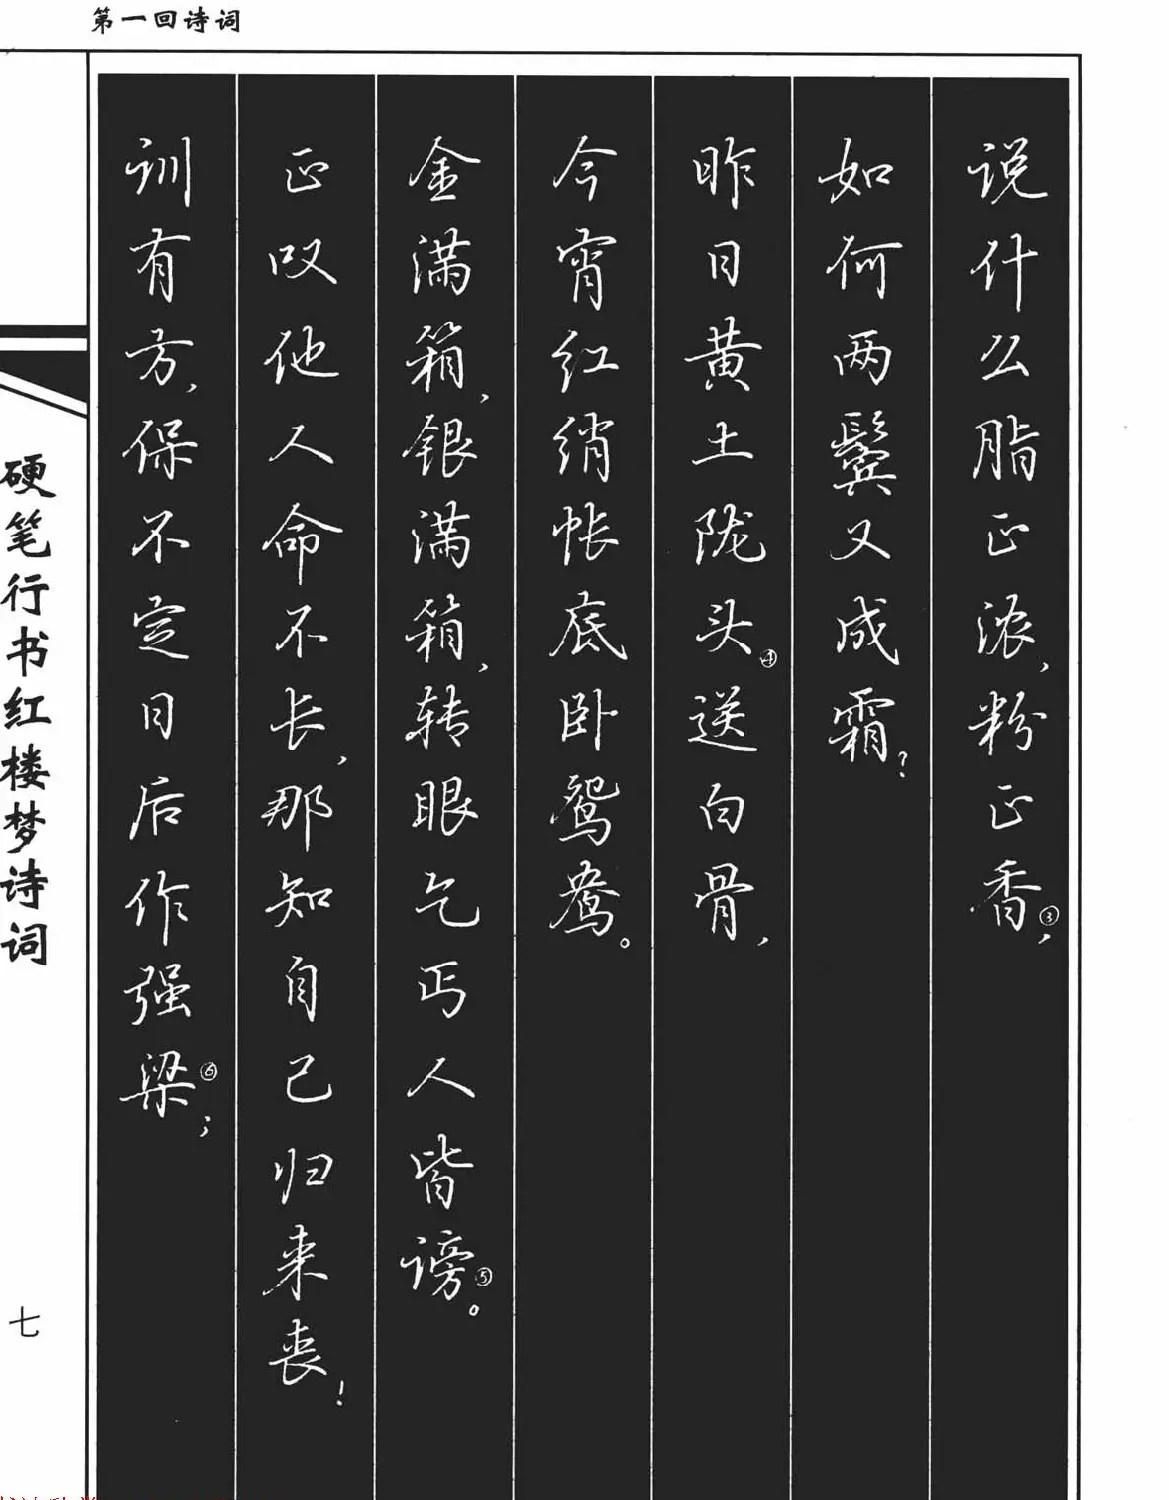 第一回诗词
说什么脂正浓，粉正香③，
如何两鬓又成霜？
昨日黄土陇头④送白骨，
今宵红绡帐底卧鸳鸯。
金满箱，银满箱，转眼乞丐人皆谤⑤。
正叹他人命不长，那知自己归来丧！
训有方，保不定日后作强梁⑥；
硬笔行书红楼梦诗词
七